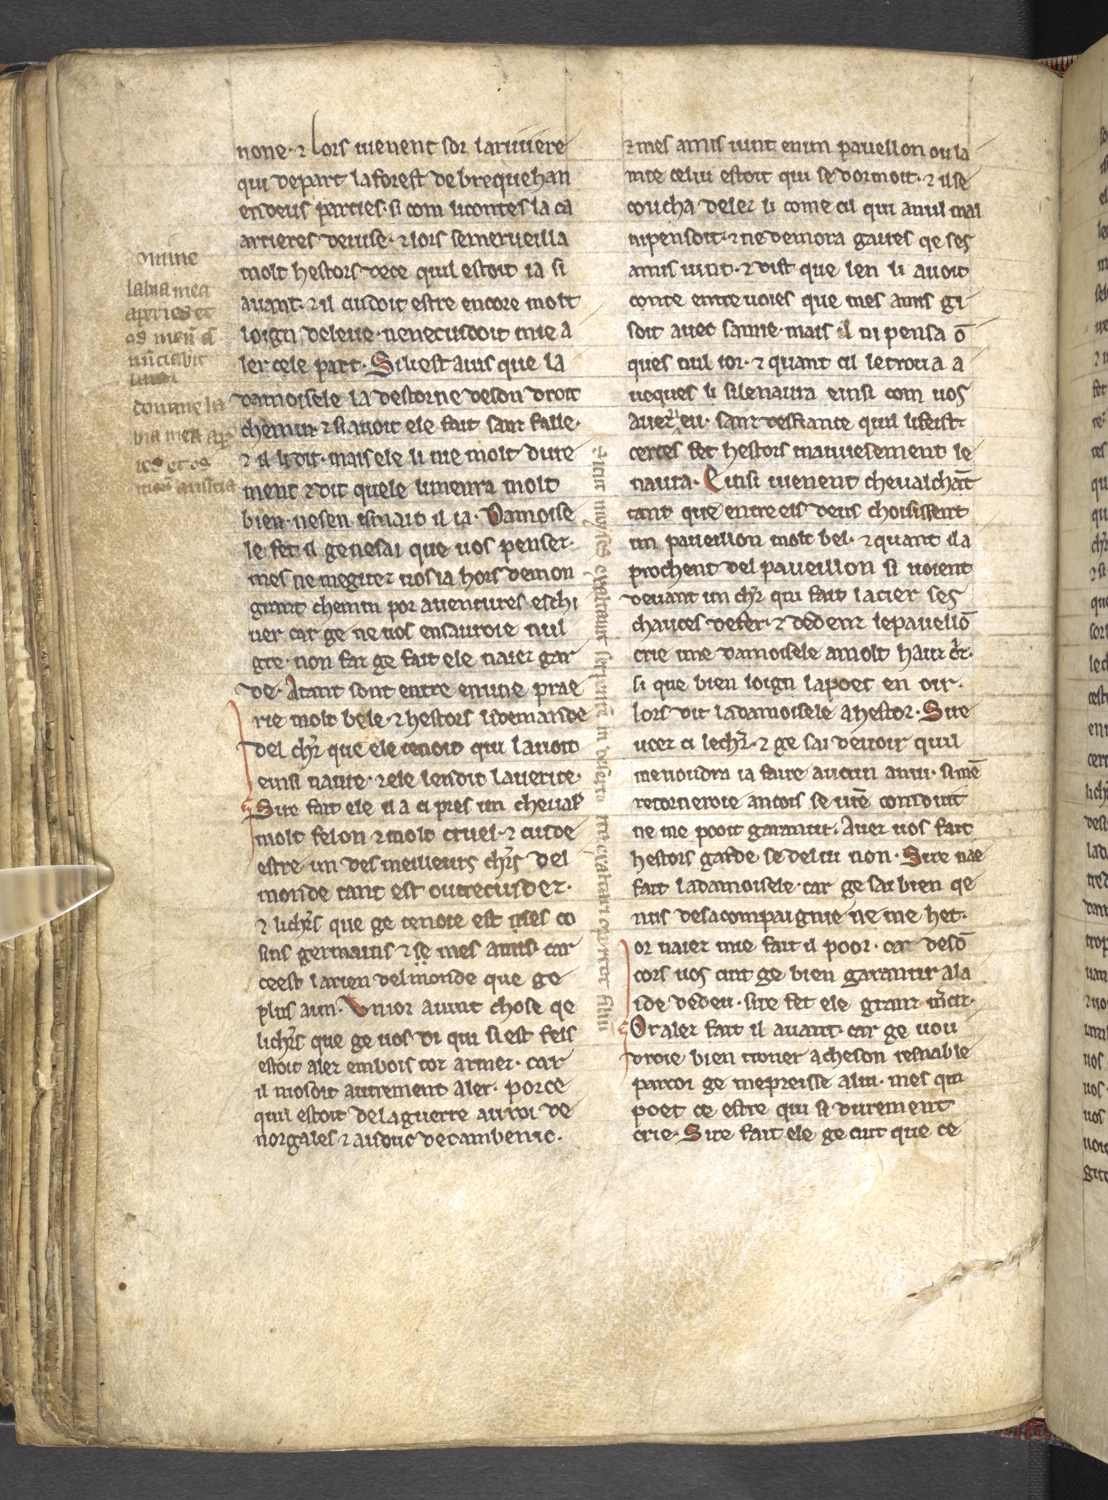 none · ⁊ lors uienent sor la riuiere
qui depart la forest de brequehan
en deus parties · si com li contes la ca
arrieres deuise · ⁊ lors semerueilla
molt hestors de ce quil estoit ia si
auant · ⁊ il cuidoit estre encore molt
loign deleue · ne ne cuidoit mie a
ler cele part · Si li est auis que la
damoisele la destorne de son droit
chemin · ⁊ si auoit ele fait sanz faille ·
⁊ il li dit · mais ele li nie molt dure
ment ⁊ dit quele li menra molt
bien · ne sen esmait il ia · Damoise
le fet il ge ne sai que uos penser ·
mes ne me gitez uos ia hors de mon
grant chemin por auentures eschi
uer car ge ne uos en sauroie nul
gre · non far ge fait ele naiez gar
de · Atant sont entre en une prae
rie molt bele · ⁊ hestors li demande
del ch'r que ele tenoit qui lauoit
einsi naure · ⁊ ele len dit la uerite ·
Sire fait ele il a ci pres un cheual
molt felon ⁊ molt cruel · ⁊ cuide
estre un des meilleurs ch'rs del
monde tant est outrecuidez ·
⁊ li ch'rs que ge tenoie est mes co
sins germains ⁊ mes amis car
ceest la rien del monde que ge
plus aim · Un ior auint chose qe
li ch'rs que ge uos di qui si est fels
estoit alez em bois tot armez · car
il nosoit autrement aler · por ce
quil estoit de la guerre au roi de
norgales ⁊ au duc de cambenic ·
⁊ mes amis uint en un pauellon ou la
mie celui estoit qui se dormoit · ⁊ il se
coucha delez li come cil qui a nul mal
ni pensoit · ⁊ ne demora gaires qe ses
amis uint · ⁊ dist que len li auoit
conte entreuoies que mes amis gi
soit auec samie · mais il ni pensa õ
ques nul ior · ⁊ quant cil le troua a
uecques li si le naura einsi com uos
auez ueu · sanz desfiance quil li feist ·
certes fet hestors mauuesement le
naura · Einsi uienent cheualchãt
tant que entre els deus choisissent
un paueillon molt bel · ⁊ quant il a
prochent del paueillon si uoient
deuant un ch'r qui fait lacier ses
chauces de fer · ⁊ dedenz le paueliõ
crie une damoisele a molt haut c̃r ·
si que bien loign la poet en oir ·
lors dit la damoisele a hestor · Sire
ueez ci le ch'r · ⁊ ge sai de uoir quil
me uoudra ia faire aucun anui · si mẽ
retorneroie ancois se ur̃e conduit
ne me pooit garantir · Auez uos fait
hestors garde se de lui non · Sire nae
fait la damoisele · car ge sai bien qe
nus de sa compaignie ne me het ·
or naiez mie fait il poor · car de sõ
cors uos cuit ge bien garantir a la
ide de deu · sire fet ele granz m̃ciz ·
Or alez fait il auant · car ge uou
droie bien trouer acheson resnable
par coi ge me preisse a lui · mes qui
poet ce estre qui si durement
crie · Sire fait ele ge cuit que ce
domine
labia mea
aperies et
os meũ ã
nũciabit
domine la
bia mea ap
ies et os
Sicut moyses exaltauit serpentẽ in deserto ita exaltari oportet filiũ